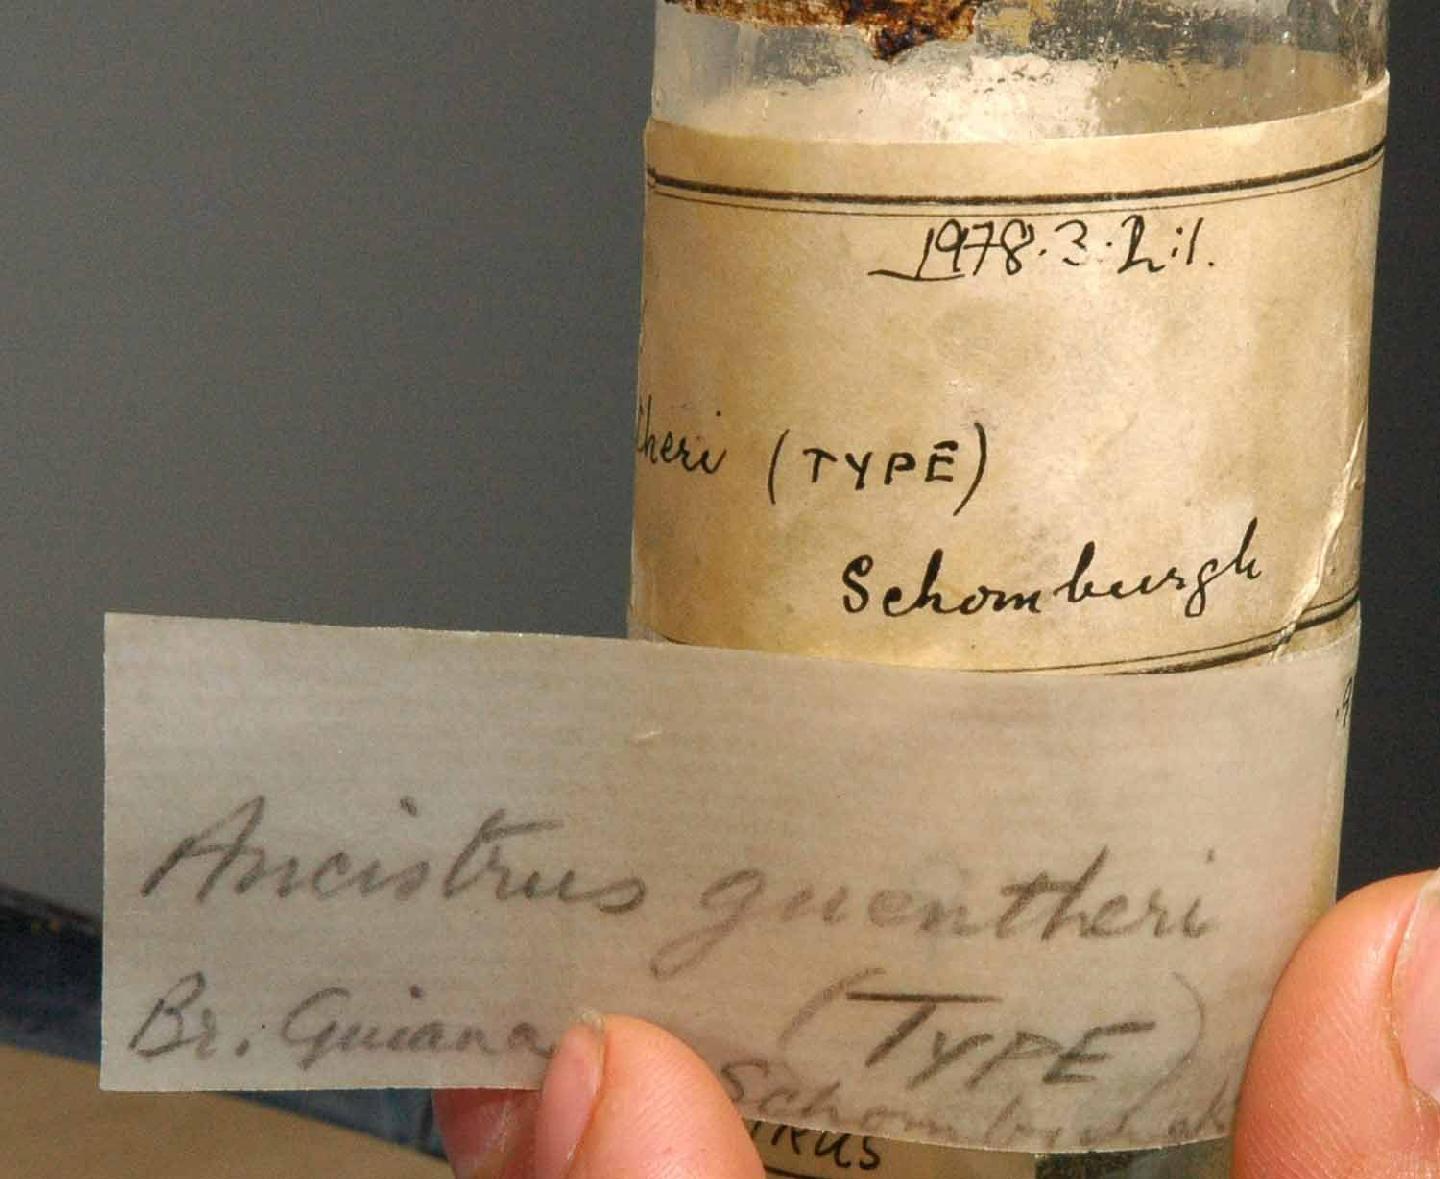 1978.3.2:1.
theri (TYPE)
Schomburgk
Ancistrus guentheri
Br. Guiana (TYPE)
Schomburgk
RUS